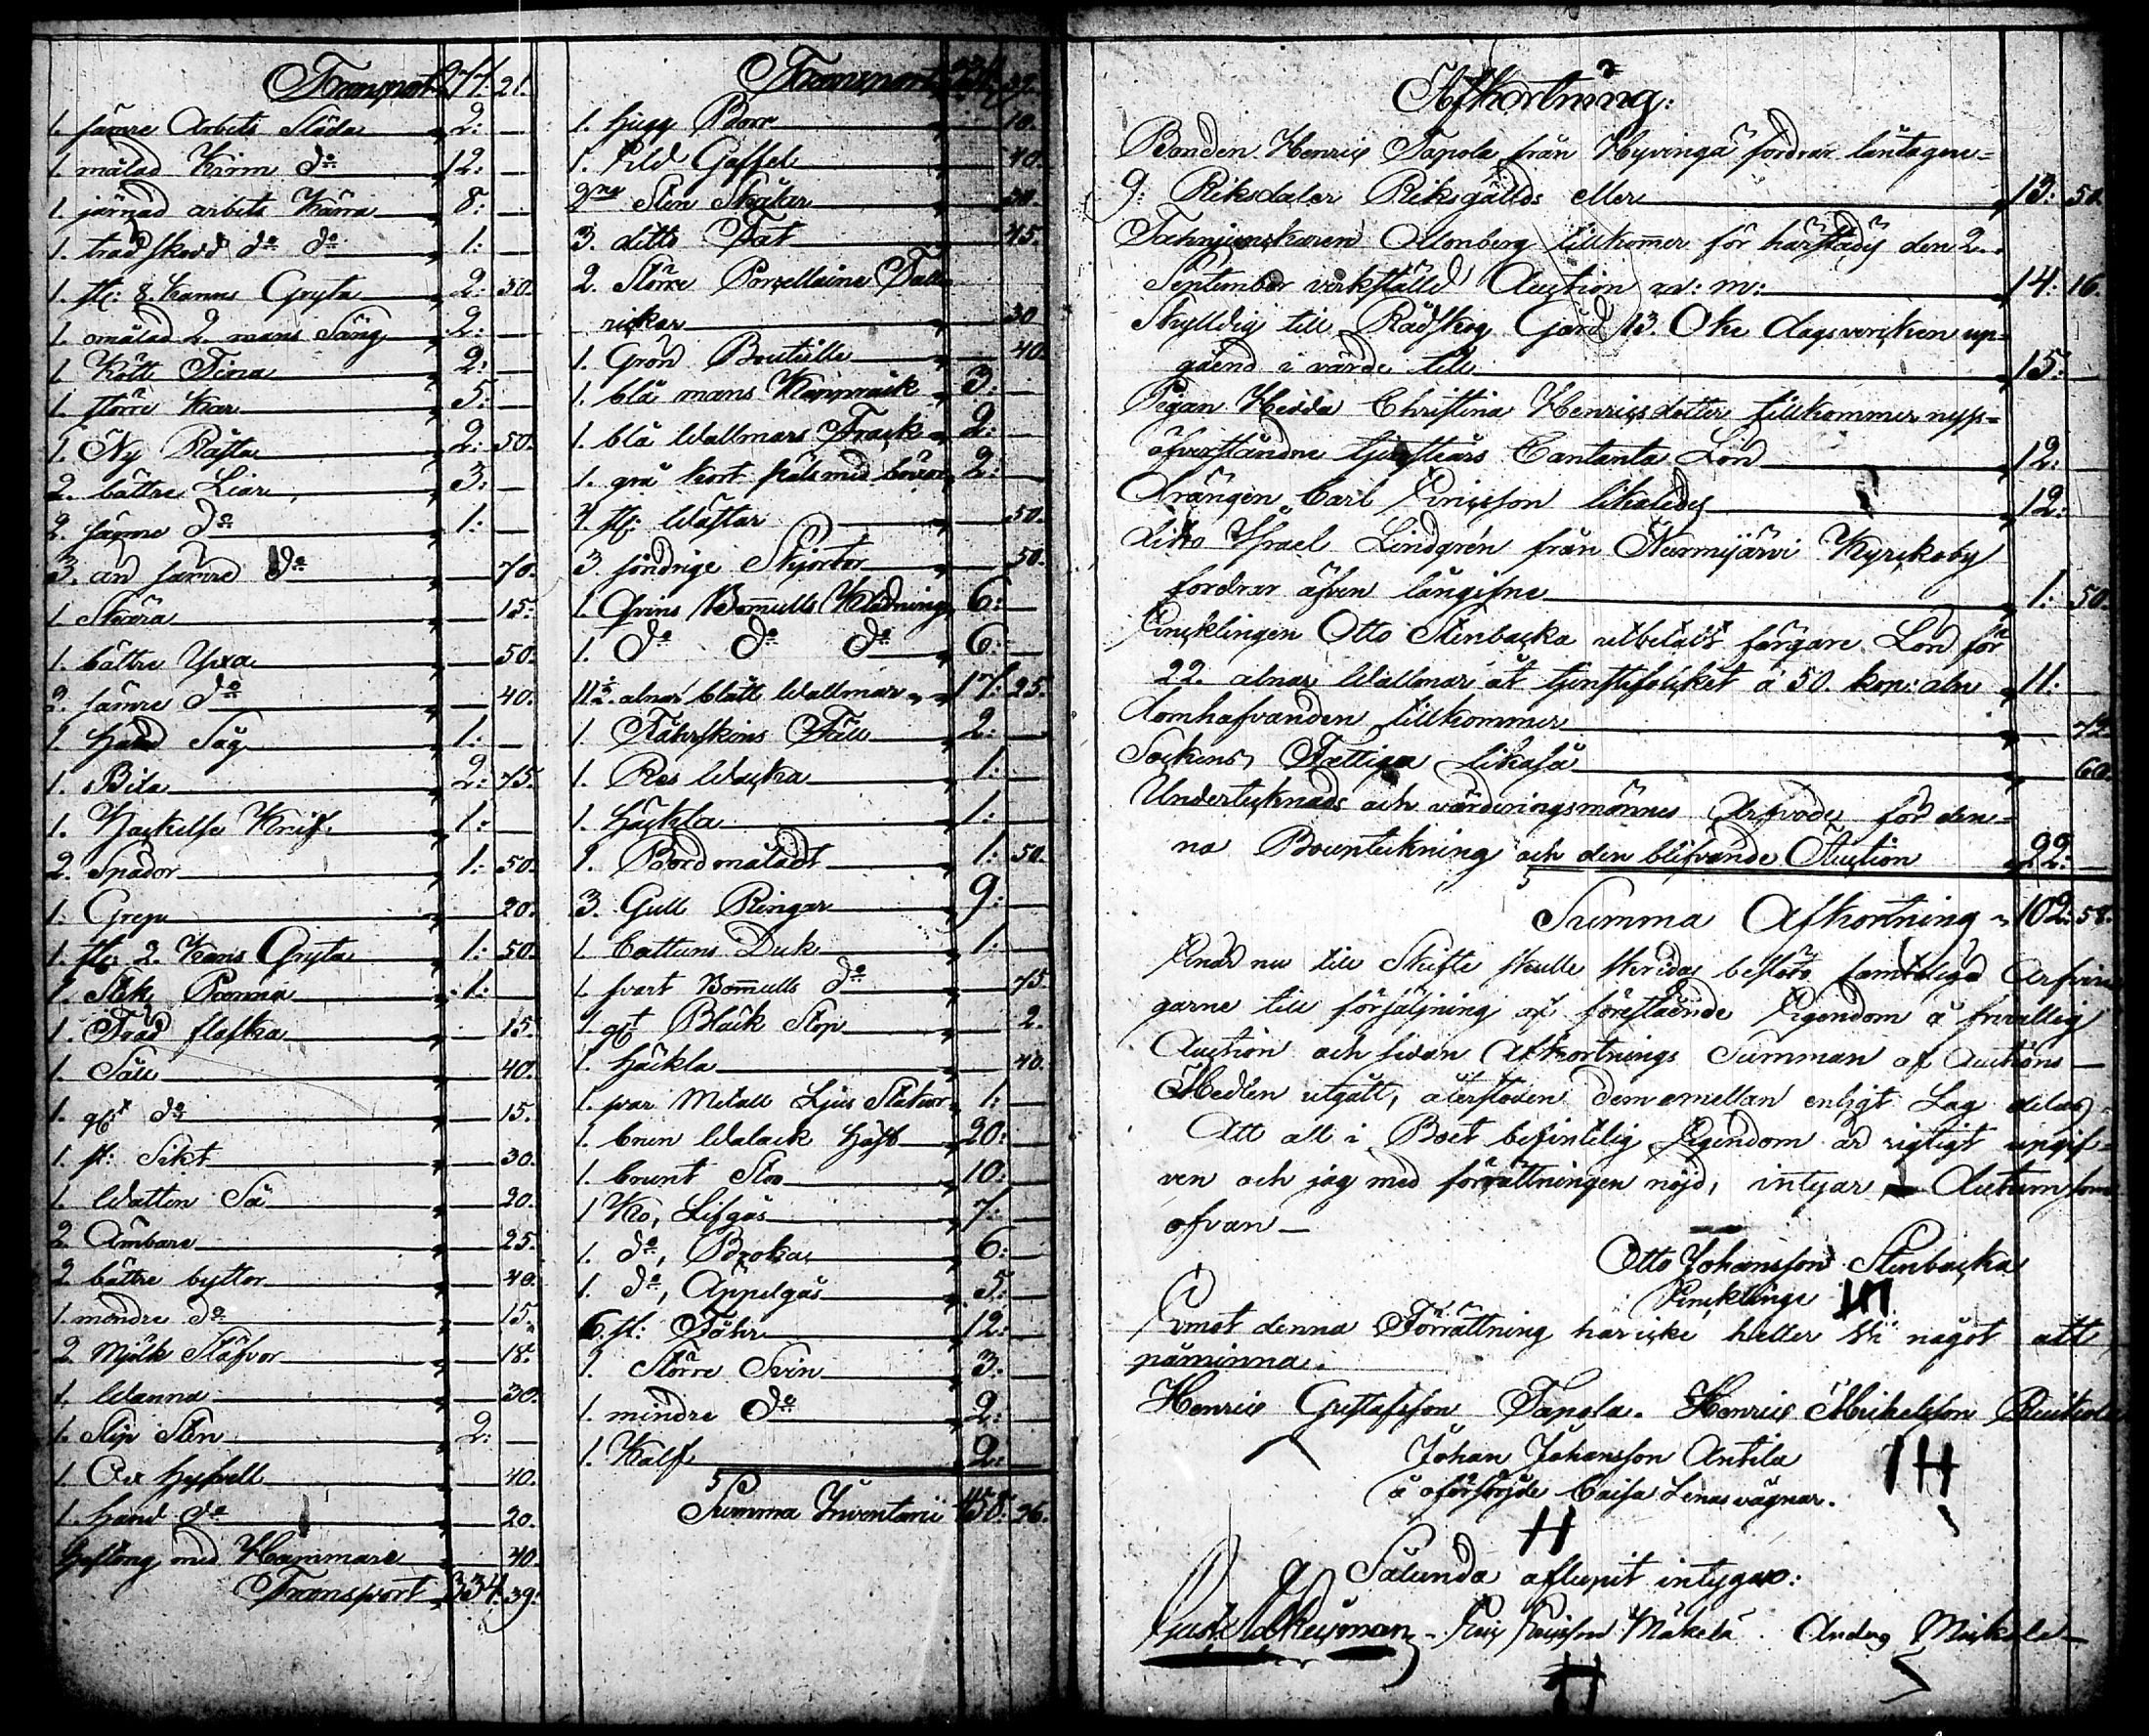 Transport 271: 21.
1. sämre Arbets Släda 2: —
1. målad Kirm d:o 12: —
1. järnad arbets Kärra 8: —
1. trädskodd d:o d:o 1: —
1. st: 8. Kanns Gryta 2: 50.
1. omålad 2. mans Säng 2: —
1. Kött Tina 2: —
1. större Kar 5: —
1. Ny Räfta 2: 50.
2. bättre Liar 3: —
2. sämre d:o 1: —
3. än sämre d:o — 70.
1. Skära — 15.
1. bättre Yxa — 50.
2. sämre d:o — 40.
1. Hand Såg 1: —
1. Bila 2: 75.
1. Hackelse Knif 1: —
2. Spador 1: 50.
1. Grepe — 20.
1. st: 2. Kans Gryta 1: 50.
1. Stek Panna 1: —
1. Träd flaska — 15.
1. Såll — 40.
1. gl:t d:o — 15.
1. st: Sikt — 30.
1. Watten Så — 20.
2. Ämbare — 25.
2 bättre byttor — 40.
1. mindre d:o — 15.
2 Mjölk Stäfvor — 18.
1. Wanna — 30.
1. Slip Sten 2: —
1. Ox Hyfvell — 40.
1. Hand d:o — 20.
Hoftång med Hammare — 40.
Transport 334: 39.
Transport 334: 39.
1. Hugg Borr — 10.
1. Eld Gaffel — 40.
2:ne Sten Skålar — 30.
3. ditto Fat — 45.
2. Större Porcellaine Talle
rickar — 30
1. Grön Bouteille — 40.
1. blå mans Kappråck 3: —
1. blå Wallmars Frack 2: —
1. grå kort päls med 2: —
4. st: Wästar — 50.
3. söndrige Skjortor — 50.
1. Qvins Bomulls Klädning 6: —
1. d:o d:o d:o 6: —
11½. alnar blått Wallmar 17: 25.
1. Fåhrskins Fäll 2: —
1. Res Wäcka 1: —
1. Häckla 1: —
1. Bord måladt 1: 50.
3. Gull Ringar 9: —
1. Cattuns Duk 1: —
1. svart Bomulls d:o — 75
1. gl:t Bläck Stop — 2.
1. Häckla — 40.
1. par Metall Ljus Stakar 1: —
1. brun Walack Häst 20: —
1. brunt Sto 10: —
1 Ko, Lifgås 7: —
1. d:o, Broka 6: —
1. d:o, Äppelgås 5: —
6. st: Fåhr 12: —
1. Större Svin 3: —
1. mindre d:o 2: —
1. Kalf 2: —
Summa Inventarii 458: 26.
Afkortning:
Bonden Henric Tapola från Hyvingä fordrar låntagne
9: Riksdaler Riksgälds eller 13: 50.
Fahnjunkaren Ollonberg tillkommer för härstädes den 2.
September verkställd Auction m: m: 14: 16.
Skylldig till Rådskog Gård 13. Öke dagsvercken up-
gåend i värde till 15: —
Pigan Hedda Christina Henricsdotter tillkommer nyss-
öfverståndne tjensteårs Contanta Lön 12: —
Drängen Carl Ericsson likaledes 12: —
ditto Israel Lindgrén från Nurmijärvi Kyrckoby
fordrar äfven långifne 1: 50.
Encklingen Otto Stenbacka utbetalt färgare Lön för
22. alnar Wallmar åt tjenstefolcket á 50. kop: aln 11: —
domhafvanden tillkommer — 72.
Sockens Fattiga likaså — 60.
Undertecknads och värderingsmännes Arfvode för den-
na Bouptekning och den blifvande Auction 22: —
Summa Afkortning 102: 58.
Enär nu till Skifte skulle skridas beslöto samtelige Arfvin
garne till försäljning af föreståénde Egendom å frivillig
Auction och sedan Afkortnings Summan af Auctions
Medlen utgått, återstoden dem emellan enligt Lag delas
Att all i Boet befintelig Egendom är rigtigt upgif-
ven och jag med förrättningen nöjd, intygar Datum som
ofvan —
Otto Johansson Stenbacka
Enckling
Emot denna Förrättning har icke heller Vi något att
påminna.
Henric Gustafsson Tapola. Henric Mickelsson
Johan Johansson Antila
å oförsörjde Caisa Lenas vägnar.
Sålunda aflupit intyga:
Eric Ericsson Mäkelä. Anders Mickola